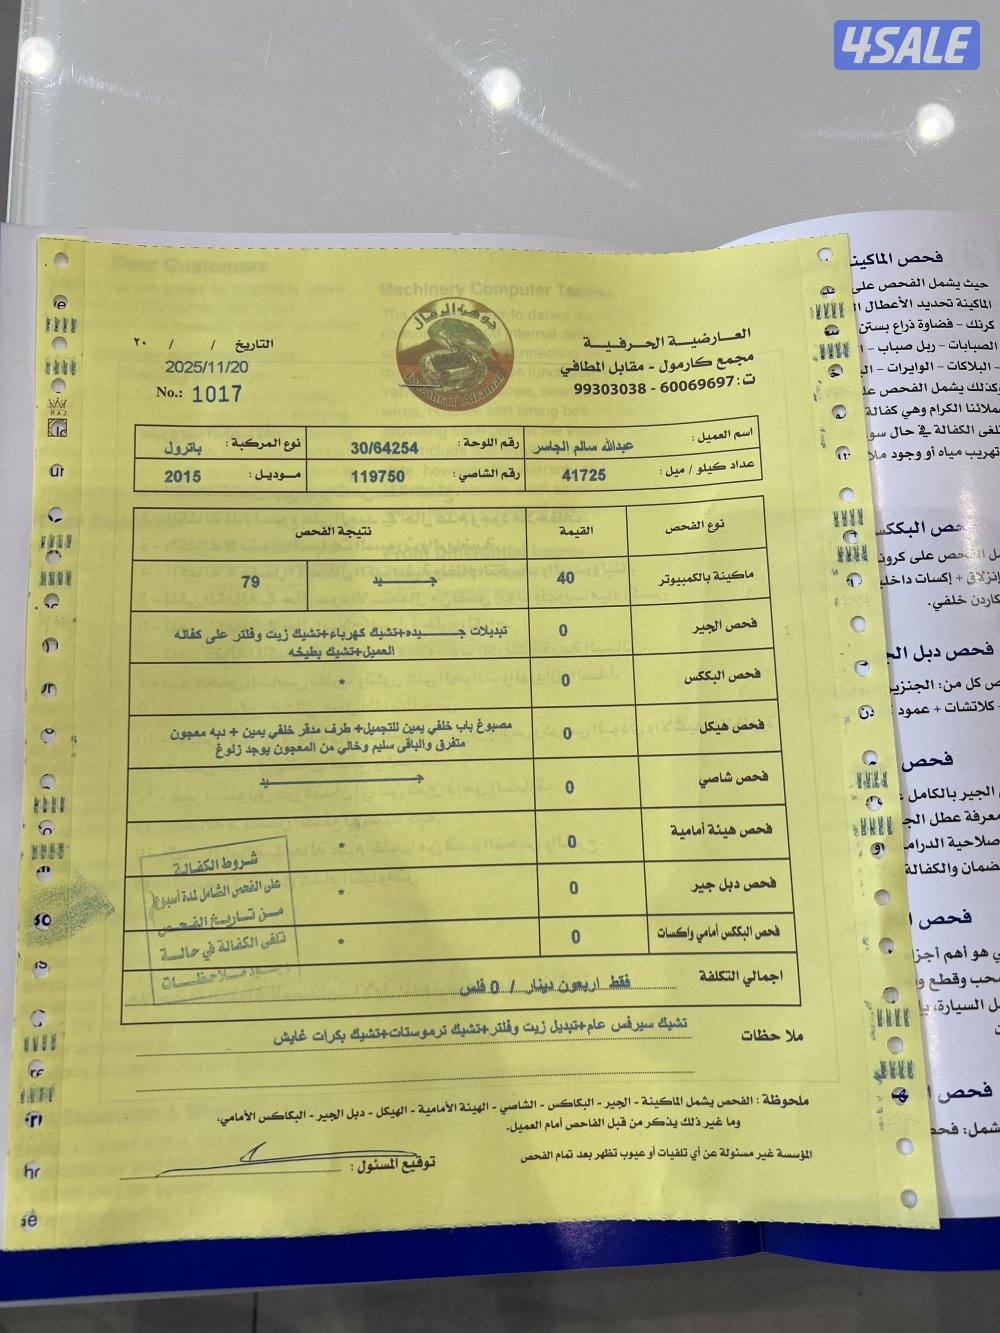 4SALE
العارضية الحرفية
مجمع كارمول - مقابل المطافي
ت: 60069697 - 99303038
جوهرة الرمال
Jawharat Alramal
التاريخ / / ٢٠
2025/11/20
No.: 1017
اسم العميل: عبدالله سالم الجاسر رقم اللوحة: 30/64254 نوع المركبة: باترول
عداد كيلو / ميل: 41725 رقم الشاصي: 119750 موديل: 2015
نوع الفحص القيمة نتيجة الفحص
ماكينة بالكمبيوتر 40 جـــيد 79
فحص الجير 0 تبديلات جـــيده+تشيك كهرباء+تشيك زيت وفلتر على كفاله
العميل+تشيك بطيخه
فحص البككس 0 *
فحص هيكل 0 مصبوغ باب خلفي يمين للتجميل+ طرف مدقر خلفي يمين + دبه معجون
متفرق والباقى سليم وخالي من المعجون يوجد زلوغ
فحص شاصي 0 جـــيد
فحص هيئة أمامية 0 *
فحص دبل جير 0 *
فحص البككس أمامي واكسات 0 *
اجمالي التكلفة فقط اربعون دينار / 0 فلس
شروط الكفالة
على الفحص الشامل لمدة أسبوع
من تاريخ الفحص
تلغى الكفالة في حالة
ملاحظات
ملاحظات تشيك سيرفس عام+تبديل زيت وفلتر+تشيك ترموستات+تشيك بكرات غايش
ملحوظة : الفحص يشمل الماكينة - الجير - البكاكس - الشاصي - الهيئة الأمامية - الهيكل - دبل الجير - البكاكس الأمامي.
وما غير ذلك يذكر من قبل الفاحص أمام العميل.
المؤسسة غير مسئولة عن أي تلفيات أو عيوب تظهر بعد تمام الفحص
توقيع المسئول :
فحص الماكينة
حيث يشمل الفحص على
الماكينة تحديد الأعطال
كرنك - فضاوة ذراع بستن
الصبابات - ربل صباب -
- البلاكات - الوايرات -
وكذلك يشمل الفحص
عملائنا الكرام وهي كفالة
تلغى الكفالة في حال
تهريب مياه أو وجود
فحص البككس
الفحص على
إنزلاق + إكسات
كاردن خلفي.
فحص دبل
كل من: الجنزير
- كلاتشات + عمود
فحص
الجير بالكامل
معرفة عطل
صلاحية
ضمان والكفالة
فحص
هو أهم
سحب وقطع
السيارة،
فحص
يشمل: فحص